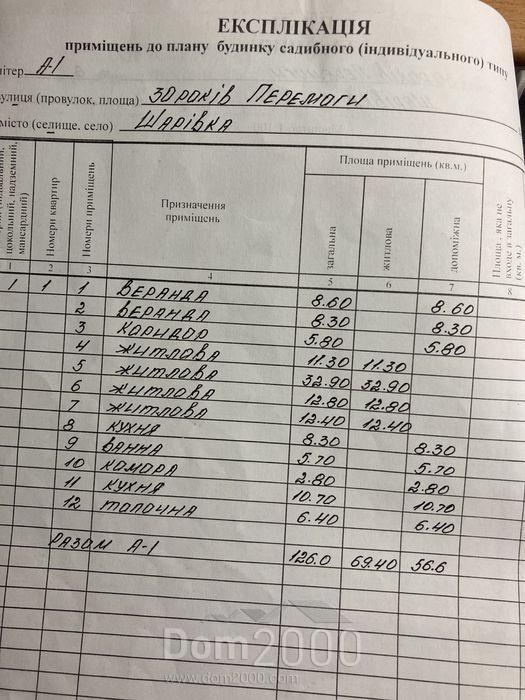 ЕКСПЛІКАЦІЯ
приміщень до плану будинку садибного (індивідуального) типу
літер А-І
вулиця (провулок, площа) 30 РОКІВ ПЕРЕМОГИ
місто (селище, село) ШАРІВКА
цокольний, надземний, мансардний)
Номери квартир
Номери приміщень
Призначення приміщень
Площа приміщень (кв.м.)
загальна
житлова
допоміжна
Площа, яка не входе в загальну (кв. м.)
1 2 3 4 5 6 7 8
1 1 1 ВЕРАНДА 8.60 8.60
2 ВЕРАНДА 8.30 8.30
3 КОРИДОР 5.80 5.80
4 ЖИТЛОВА 11.30 11.30
5 ЖИТЛОВА 32.90 32.90
6 ЖИТЛОВА 12.80 12.80
7 ЖИТЛОВА 12.40 12.40
8 КУХНЯ 8.30 8.30
9 ВАННА 5.70 5.70
10 КОМОРА 2.80 2.80
11 КУХНЯ 10.70 10.70
12 ТОПОЧНА 6.40 6.40
РАЗОМ А-І 126.0 69.40 56.6
Dom2000
www.dom2000.com